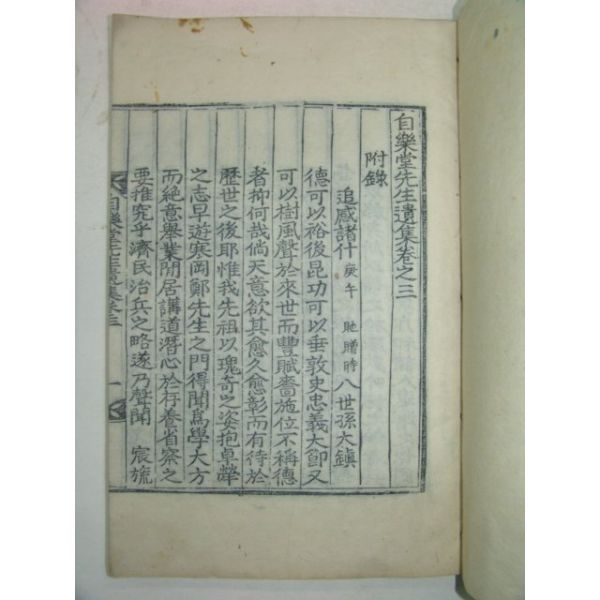 自樂堂先生遺集卷之三
附錄
追感諸什 庚午 貤贈時 八世孫大鎭
德可以裕後昆功可以垂敦史忠義大節又
可以樹風聲於來世而豐賦嗇施位不稱德
者抑何哉倘天意欲其愈久愈彰而有待於
歷世之後耶惟我先祖以瑰奇之姿抱卓犖
之志早遊寒岡鄭先生之門得聞爲學大方
而絶意擧業閒居講道潛心於存養省察之
要推究乎濟民治兵之略遂乃聲聞 宸旒
自樂堂先生遺集卷三 一